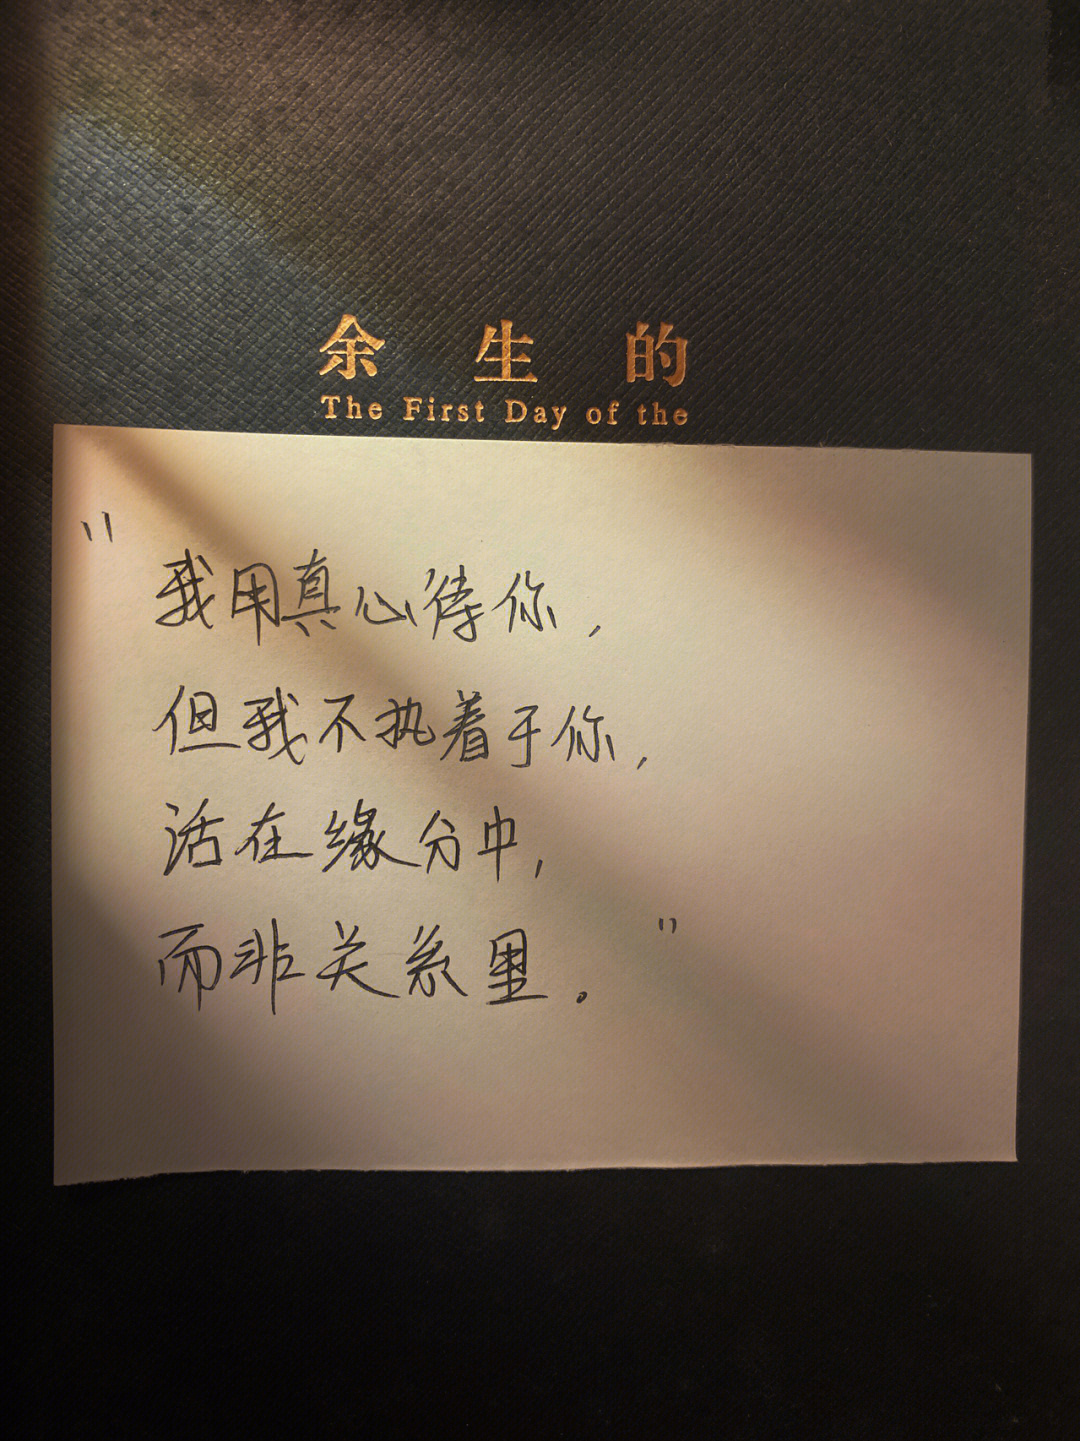 余生的
The First Day of the
"我用真心待你，
但我不执着于你，
活在缘分中，
而非关系里。"